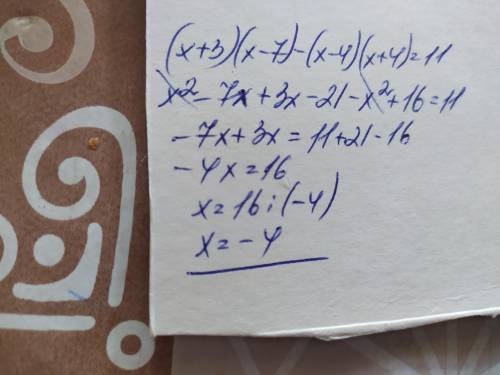 (x+3)(x-7)-(x-4)(x+4)=11
x²-7x+3x-21-x²+16=11
-7x+3x=11+21-16
-4x=16
x=16:(-4)
x=-4